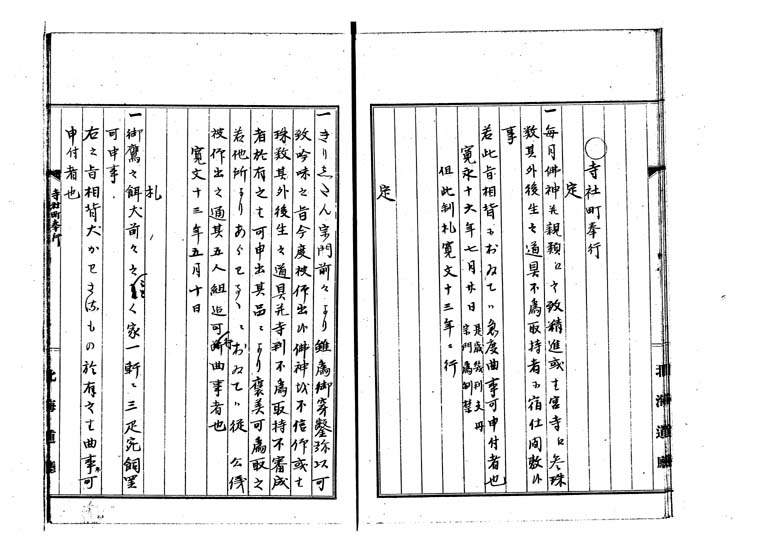 ○寺社町奉行
定
一毎月佛神並親類ニ而致精進或者宮寺江参珠
数其外後生之道具不為取持者ニ宿仕間敷候
事
若此旨相背ニおゐてハ急度曲事可申付者也
寛永十六年七月廿日
宗門為制禁
但此制札寛文十三年ニ行
定
一きりしたん宗門前々より雖為御穿鑿弥以可
致吟味之旨今度被作出候佛神を不信作或者
珠数其外後生之道具並寺判不為取持不審成
者於有之者可申出其品ニより褒美可為取之
若他所よりあらわるゝニおゐてハ従公儀
被作出之通其五人組迄可行曲事者也
寛文十三年五月十日
札
一御鷹之餌犬前々之ことく家一軒ニ三疋宛飼置
可申事
右之旨相背犬かわさるもの於有之者曲事ニ可
申付者也
寺社町奉行
北海道廳
北海道廳